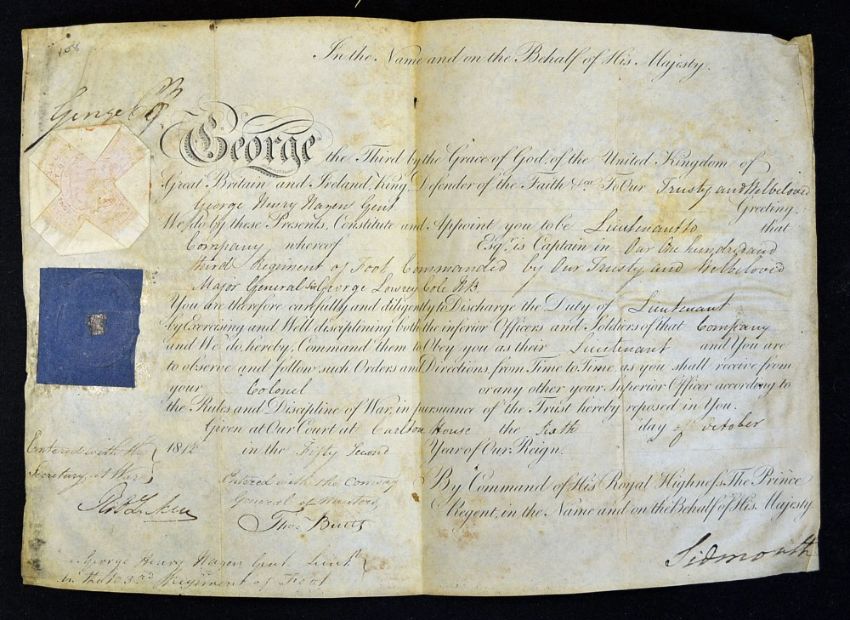 108
In the Name and on the Behalf of His Majesty.
George P R
George the Third by the Grace of God, of the United Kingdom of
Great Britain and Ireland King, Defender of the Faith &c. To Our Trusty and Welbeloved
George Henry Hagen Gent Greeting.
We do by these Presents, Constitute and Appoint you to be Lieutenant to that
Company whereof Esq. is Captain in Our One hundred and
third Regiment of Foot, Commanded by Our Trusty and Welbeloved
Major General Sir George Lowrey Cole K.B.
You are therefore carefully and diligently to Discharge the Duty of Lieutenant
by Exercising and Well disciplening both the inferior Officers and Soldiers of that Company
and We do, hereby, Command them to Obey you as their Lieutenant and You are
to observe and follow such Orders and Directions, from Time to Time as you shall receive from
your Colonel or any other your Superior Officer according to
the Rules and Discipline of War, in pursuance of the Trust hereby reposed in You.
Given at Our Court at Carlton House the Sixth day of October
1812 in the Fifty Second Year of Our Reign.
By Command of His Royal Highness The Prince
Regent, in the Name and on the Behalf of His Majesty
Sidmouth
Entered with the
Secretary at War
Entered with the Comissy
General of Musters
Thos Butts
George Henry Hagen Gent Lieut
in the 103rd Regiment of Foot